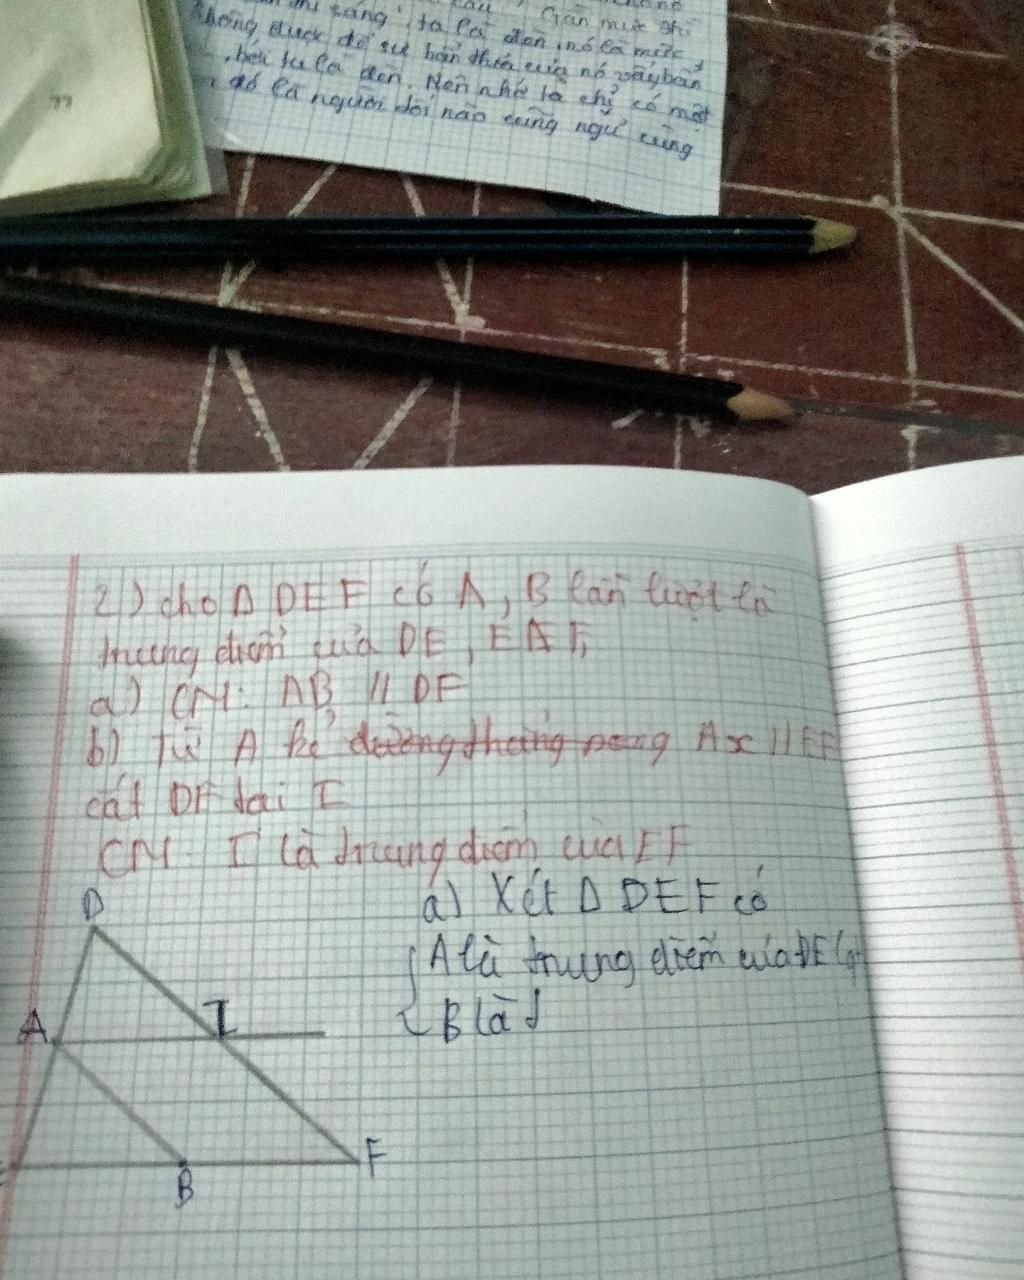 Gần mực thì
thì sáng, ta là đèn, nó là mực
không được để sự bản thân của nó vấy bẩn
bởi ta là đèn. Nên nhớ là chỉ có một
đó là người đời nào cũng ngự cùng
77
2) cho Δ DEF có A, B lần lượt là
trung điểm của DE, EF,
a) CM: AB // DF
b) Từ A kẻ đường thẳng song Ax // EF
cắt DF tại I
CM: I là trung điểm của EF
D
a) Xét Δ DEF có
A là trung điểm của DE (gt
B là
A
I
F
B